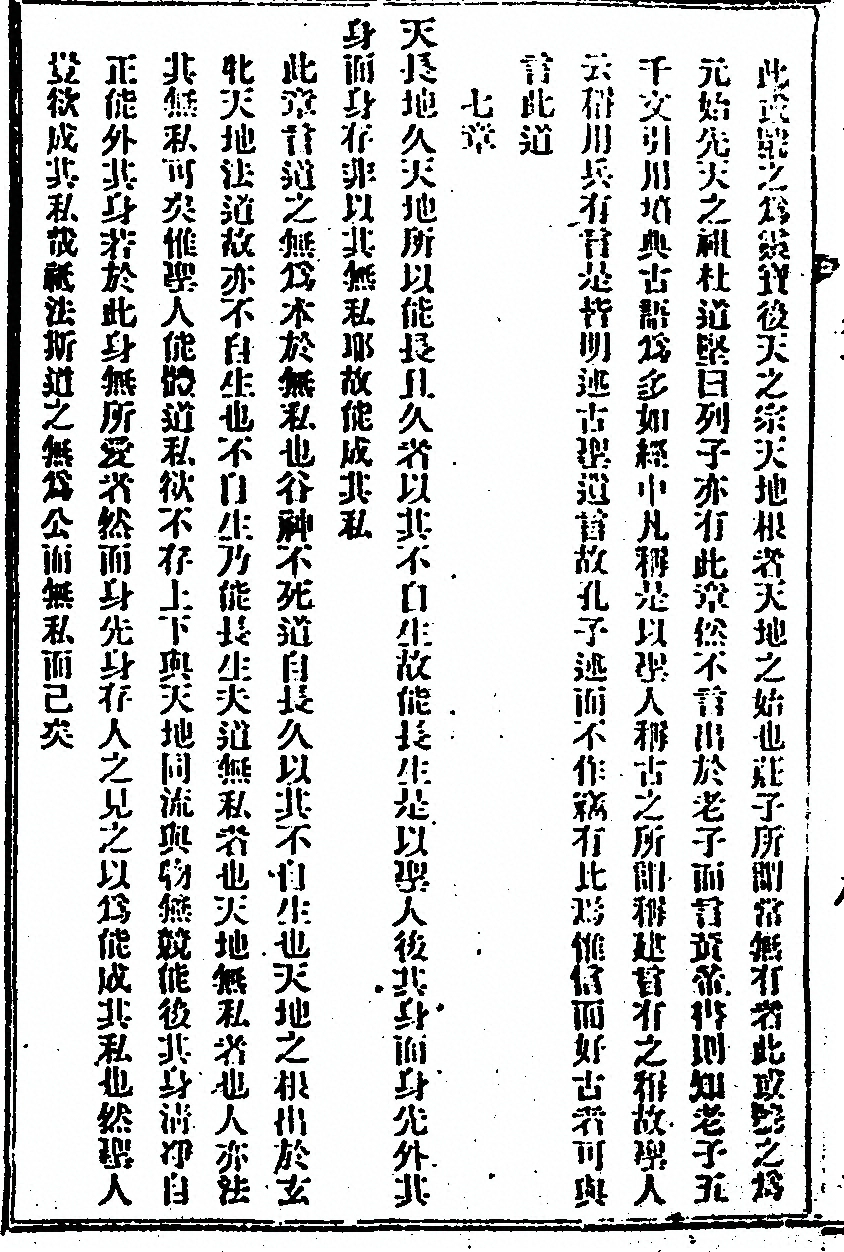 此或號之爲靈寶後天之宗天地根者天地之始也莊子所謂常無有者此或號之爲
元始先天之祖杜道堅曰列子亦有此章然不言出於老子而言黃帝書則知老子五
千文引用墳典古語爲多如經中凡稱是以聖人稱古之所謂稱建言有之稱故聖人
云稱用兵有言是皆明述古聖遺言故孔子述而不作竊有比焉惟信而好古者可與
言此道
七章
天長地久天地所以能長且久者以其不自生故能長生是以聖人後其身而身先外其
身而身存非以其無私耶故能成其私
此章言道之無爲本於無私也谷神不死道自長久以其不自生也天地之根出於玄
牝天地法道故亦不自生也不自生乃能長生夫道無私者也天地無私者也人亦法
其無私可矣惟聖人能體道私欲不存上下與天地同流與物無競能後其身清淨自
正能外其身若於此身無所愛者然而身先身存人之見之以爲能成其私也然聖人
豈欲成其私哉祗法斯道之無爲公而無私而已矣